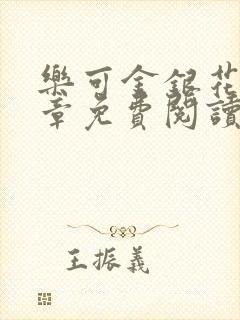 樂可金銀花
章免費閱讀
王振義